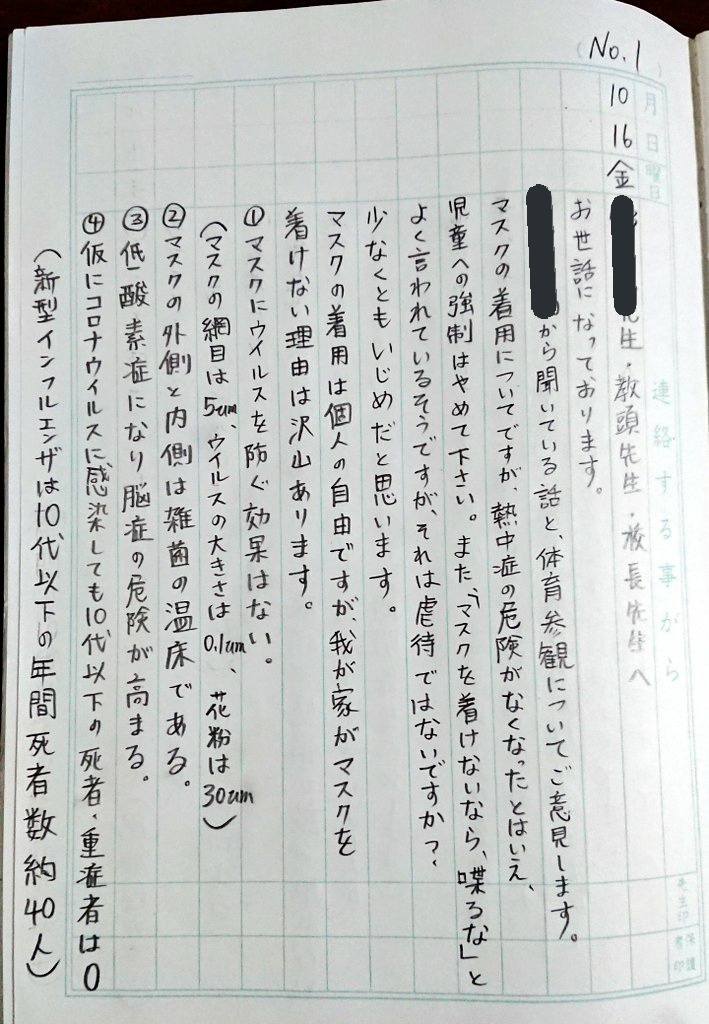 (No.1)
月日曜日
連絡する事がら
先生印
保護者印
10 16 金 先生・教頭先生・校長先生へ
お世話になっております。
から聞いている話と、体育参観についてご意見します。
マスクの着用についてですが、熱中症の危険がなくなったとはいえ、
児童への強制はやめて下さい。また、「マスクを着けないなら、喋るな」と
よく言われているそうですが、それは虐待ではないですか?
少なくともいじめだと思います。
マスクの着用は個人の自由ですが、我が家がマスクを
着けない理由は沢山あります。
①マスクにウイルスを防ぐ効果はない。
(マスクの網目は5um、ウイルスの大きさは0.1um、花粉は30um)
②マスクの外側と内側は雑菌の温床である。
③低酸素症になり脳症の危険が高まる。
④仮にコロナウイルスに感染しても10代以下の死者、重症者は0
(新型インフルエンザは10代以下の年間死者数約40人)